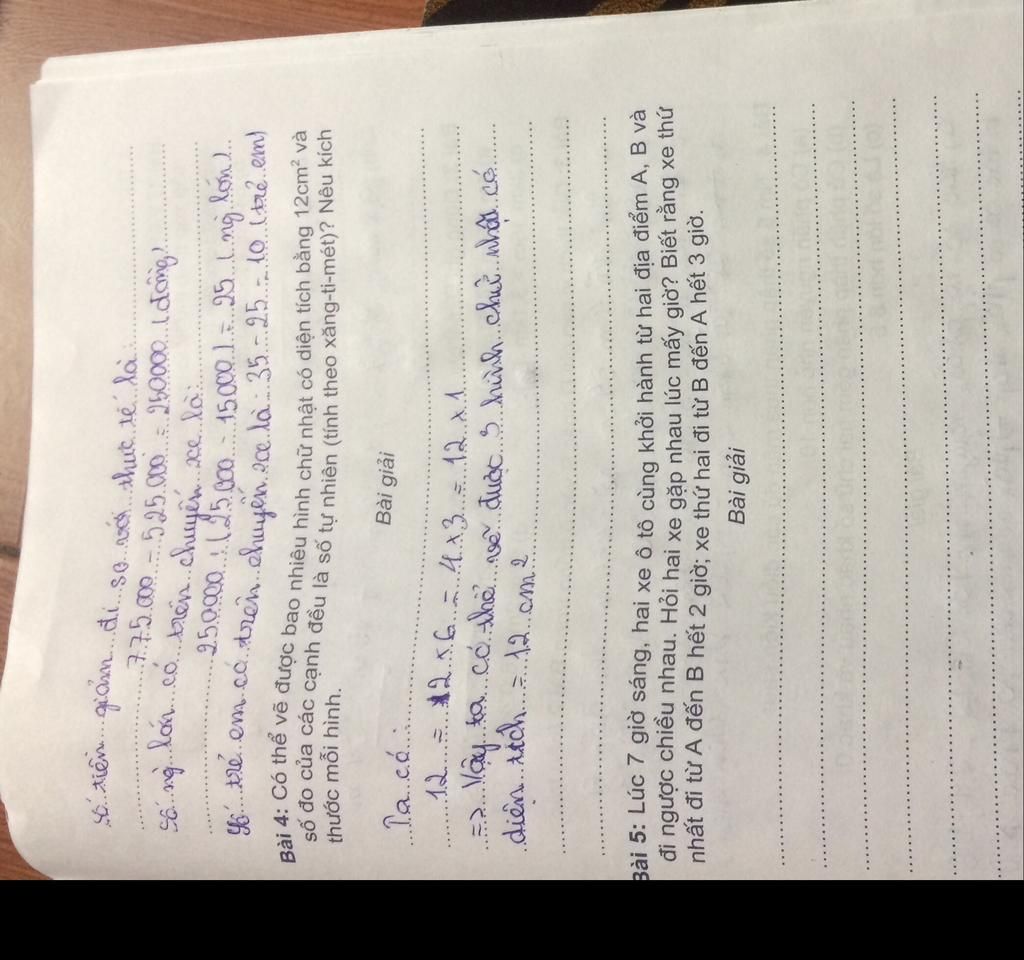 Số tiền giảm đi so với thực tế là
775.000 - 525.000 = 250000 (đồng)
Số ng lớn có trên chuyến xe là:
250000 : (25.000 - 15000) = 25 (ng lớn)
Số trẻ em có trên chuyến xe là: 35 - 25 = 10 (trẻ em)
Bài 4: Có thể vẽ được bao nhiêu hình chữ nhật có diện tích bằng 12cm² và
số đo của các cạnh đều là số tự nhiên (tính theo xăng-ti-mét)? Nêu kích
thước mỗi hình.
Bài giải
Ta có:
12 = 2 x 6 = 4 x 3 = 12 x 1
=> Vậy ta có thể vẽ được 3 hình chữ nhật có
diện tích = 12 cm2
Bài 5: Lúc 7 giờ sáng, hai xe ô tô cùng khởi hành từ hai địa điểm A, B và
đi ngược chiều nhau. Hỏi hai xe gặp nhau lúc mấy giờ? Biết rằng xe thứ
nhất đi từ A đến B hết 2 giờ; xe thứ hai đi từ B đến A hết 3 giờ.
Bài giải